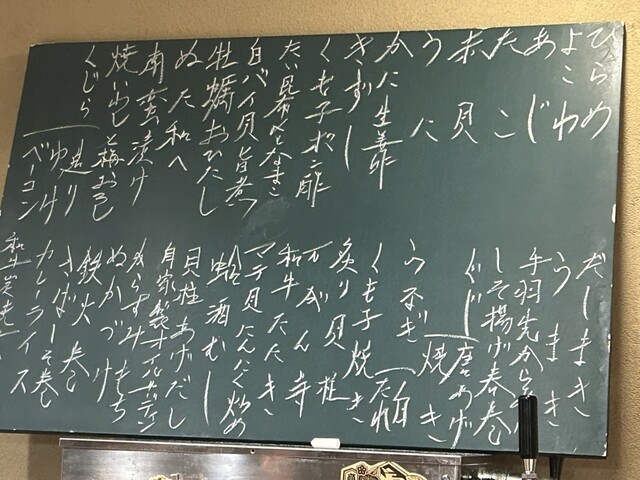 ひらめ
よこわ
あじ
たこ
赤貝
うに
かに生姜酢
きずし
くも子ポン酢
たい昆布〆なまこ
白バイ貝旨煮
牡蠣おひたし
ぬた和へ
南蛮漬け
焼いわしと梅おろし
くじら
造り
ゆけ
ベーコン
だしまき
うまき
手羽先からあげ
しそ揚げ春巻
ぐじ
唐あげ
焼き
うなぎ
白
たれ
くも子焼き
炙り貝柱
万がん寺
和牛たたき
マテ貝にんにく炒め
蛤酒むし
貝柱あげだし
自家製オイルサーディン
からすみもち
ぬかづけ
鉄火巻
さばきずし巻
カレーライス
和牛炭焼